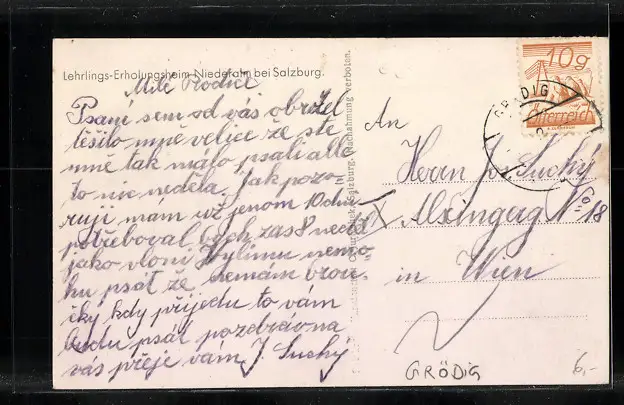 Lehrlings-Erholungsheim Niederalm bei Salzburg.
Milé Rodiče
Psaní sem od vás obržel
těšilo mně velice že ste
mně tak málo psali ale
to nic nedělá. Jak pozo-
ruji mám už jenom 10 dnu
potřeboval bych zas 8 neděl
jako vloni
psát že nemám
kdy přijedu to vám
budu psát pozdrávna
vás přeje vám J. Suchý
Nachahmung verboten.
10g
Österreich
GRÖDIG
An
Herrn Jos. Suchý
Alxingerg No 18
in Wien
GRÖDIG
6,-